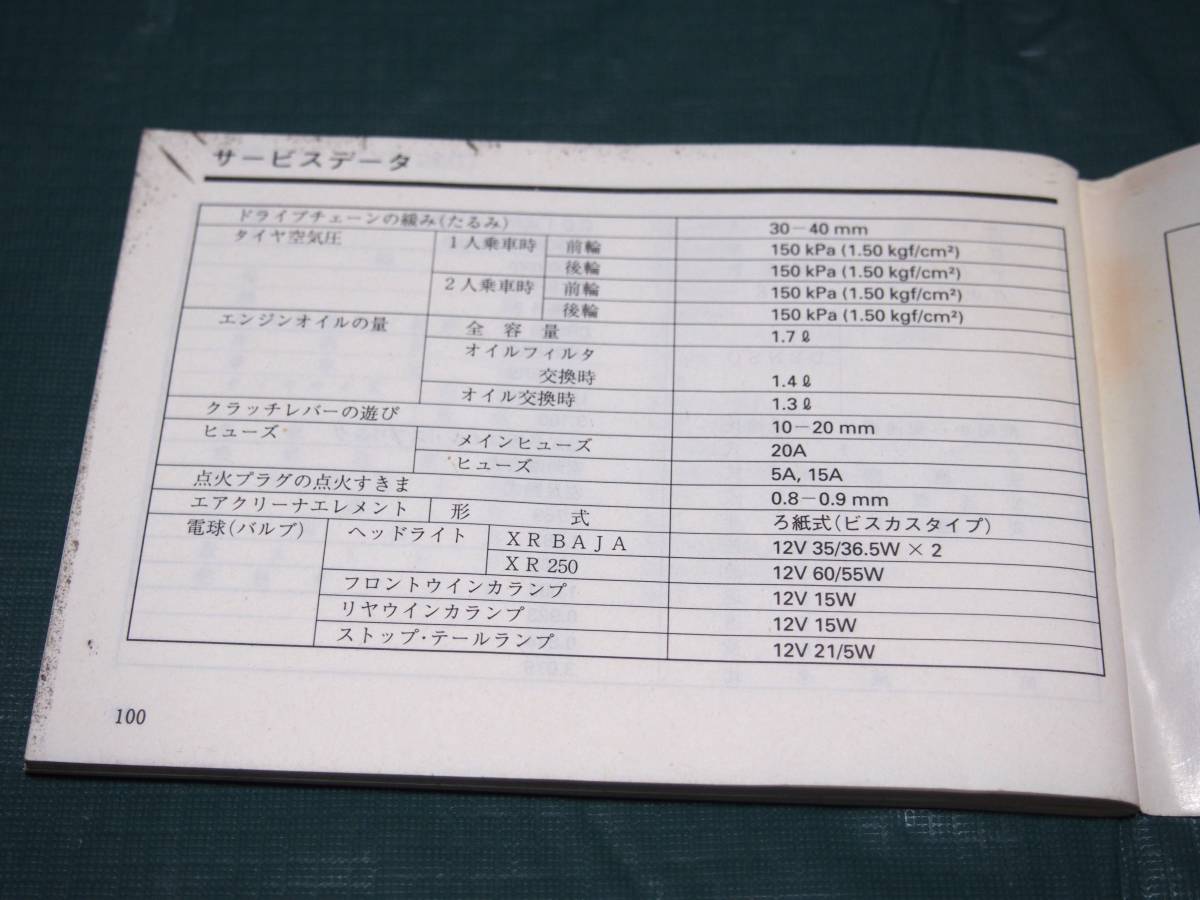 サービスデータ
ドライブチェーンの緩み(たるみ) 30−40 mm
タイヤ空気圧 1人乗車時 前輪 150 kPa (1.50 kgf/cm²)
後輪 150 kPa (1.50 kgf/cm²)
2人乗車時 前輪 150 kPa (1.50 kgf/cm²)
後輪 150 kPa (1.50 kgf/cm²)
エンジンオイルの量 全容量 1.7ℓ
オイルフィルタ
交換時 1.4ℓ
オイル交換時 1.3ℓ
クラッチレバーの遊び 10−20 mm
ヒューズ メインヒューズ 20A
ヒューズ 5A, 15A
点火プラグの点火すきま 0.8−0.9 mm
エアクリーナエレメント 形式 ろ紙式(ビスカスタイプ)
電球(バルブ) ヘッドライト XR BAJA 12V 35/36.5W × 2
XR250 12V 60/55W
フロントウインカランプ 12V 15W
リヤウインカランプ 12V 15W
ストップ・テールランプ 12V 21/5W
100